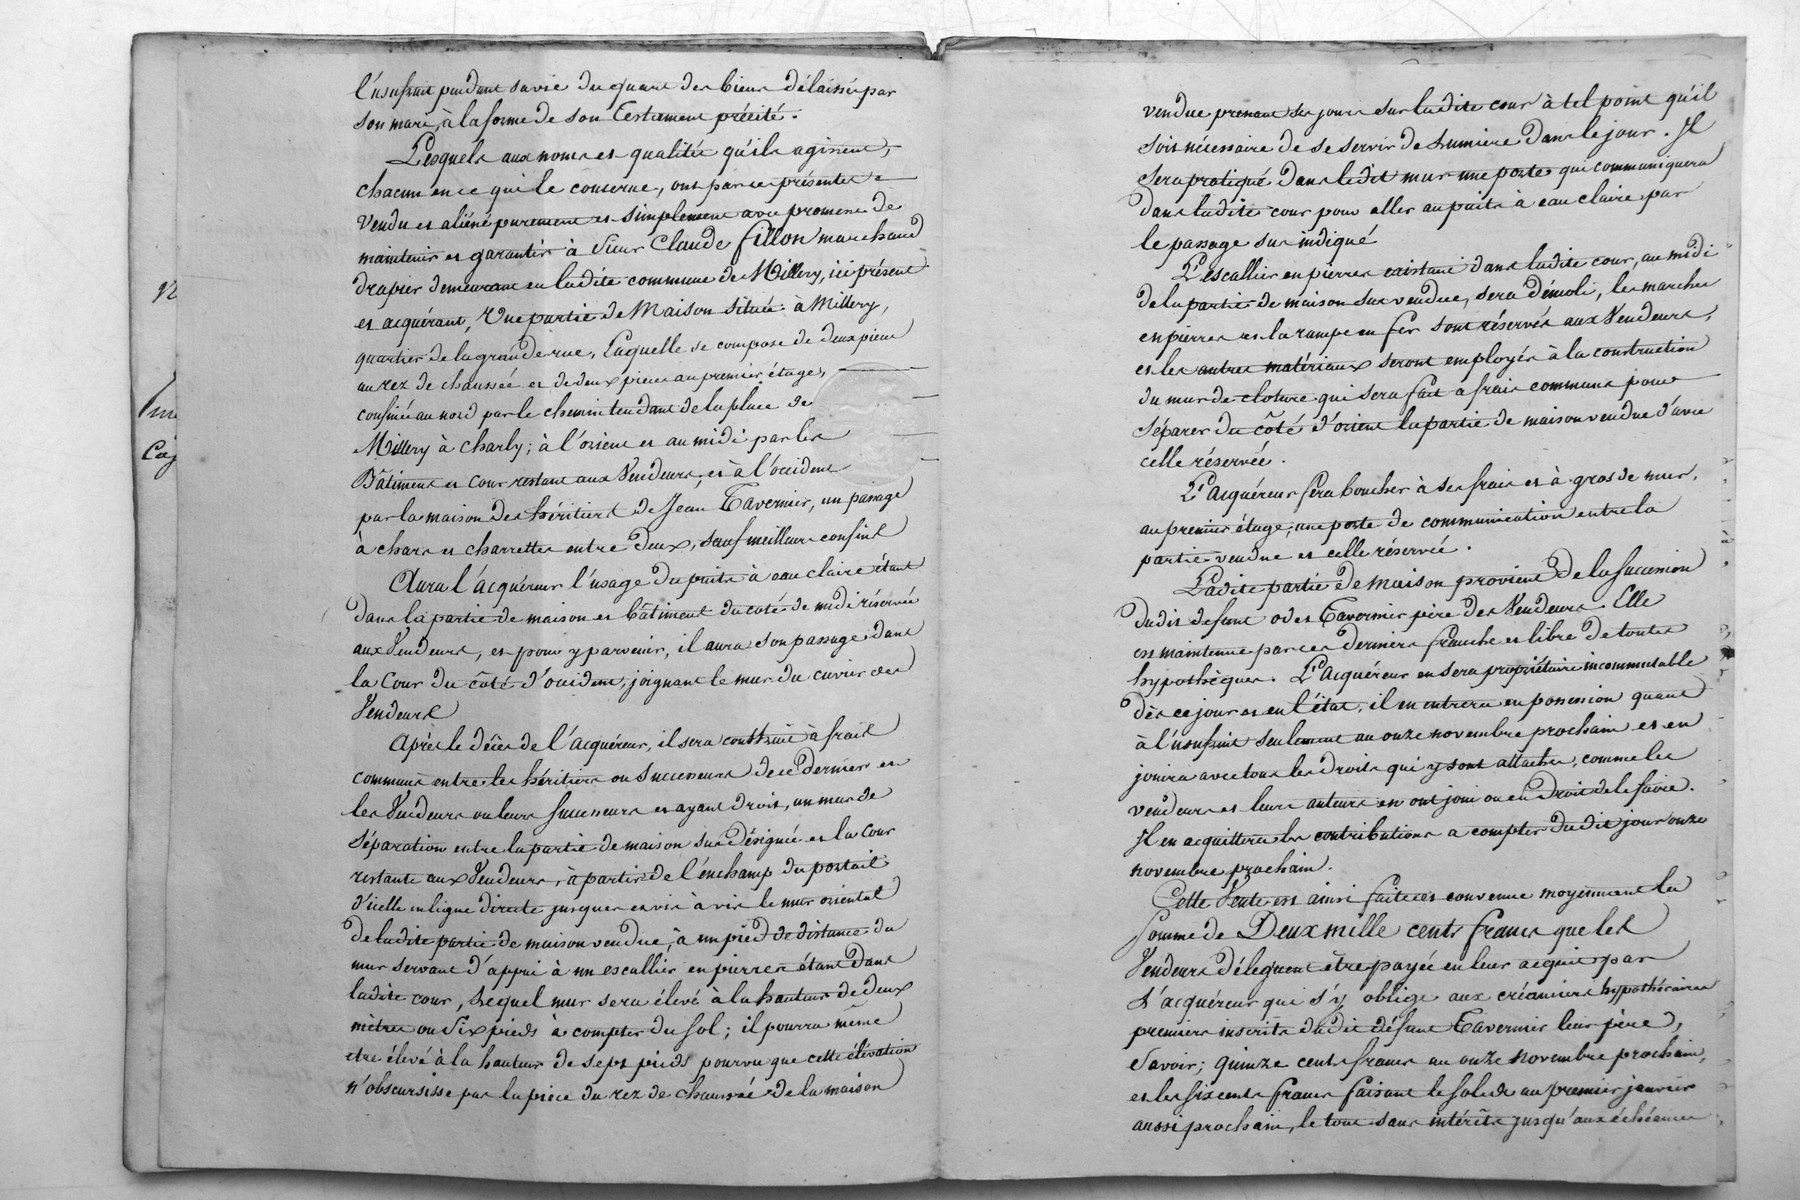 l'usufruit pendant sa vie du quart des biens délaissés par
son mari, à la forme de son Testament précité.
Lesquels aux noms et qualités qu'ils agissent,
chacun en ce qui le concerne, ont par ces présentes
vendu et aliéné purement et simplement avec promesse de
maintenir et garantir à Sieur Claude fillon marchand
drapier demeurant en ladite commune de Millery, ici présent
et acquérant, Une partie de Maison située à Millery,
quartier de la grande rue, Laquelle se compose de deux pieces
au rez de chaussée et de deux pieces au premier étage,
confinée au nord par le chemin tendant de la place de
Millery à Charly; à l'orient et au midi par les
Bâtiments et Cour restant aux Vendeurs, et à l'occident
par la maison des héritiers de Jean Tavernier, un passage
à chars et charrettes entre deux, sauf meilleurs confins
Aura l'acquéreur l'usage du puits à eau claire étant
dans la partie de maison et bâtiment du coté de midi réservée
aux Vendeurs, et pour y parvenir, il aura son passage dans
la Cour du côté d'occident, joignant le mur du cuvier des
Vendeurs
Après le décès de l'acquéreur, il sera construit à frais
communs entre les héritiers ou successeurs de ce dernier et
les Vendeurs ou leurs successeurs et ayant droit, un mur de
séparation entre la partie de maison sus désignée et la Cour
restante aux Vendeurs, à partir de l'enchamp du portail
d'icelle en ligne directe jusques en vis à vis le mur oriental
de ladite partie de maison vendue, à un pied de distance du
mur servant d'appui à un escallier en pierres étant dans
ladite cour, Lequel mur sera élevé à la hauteur de deux
mètres ou Six pieds à compter du sol; il pourra même
etre élevé à la hauteur de sept pieds pourvu que cette élévation
n'obscursisse pas la pièce du rez de chaussée de la maison
vendue prenant ses jours sur ladite cour à tel point qu'il
soit nécessaire de se servir de Lumière dans le jour. Il
sera pratiqué dans ledit mur une porte qui communiquera
dans ladite cour pour aller au puits à eau claire par
le passage sus indiqué
L'escallier en pierres existant dans ladite cour, au midi
de la partie de maison sus vendue, sera démoli, les marches
en pierres et la rampe en fer sont réservés aux Vendeurs,
et les autres matériaux seront employés à la construction
du mur de cloture qui sera fait à frais communs pour
séparer du côté d'orient la partie de maison vendue d'avec
celle réservée.
L'acquéreur fera boucher à ses frais et à gros de mur,
au premier étage, une porte de communication entre la
partie vendue et celle réservée.
Ladite partie de maison provient de la succession
dudit défunt Tavernier père des Vendeurs. Elle
est maintenue par ces derniers franche et libre de toutes
hypothèques. L'acquéreur en sera propriétaire incommutable
dès ce jour et en l'état, il en entrera en possession quant
à l'usufruit seulement au onze novembre prochain et en
jouira avec tous les droits qui y sont attachés, comme les
vendeurs et leurs auteurs en ont joui ou eu droit de le faire.
Il en acquittera les contributions a compter dudit jour onze
novembre prochain.
Cette Vente est ainsi faite et convenue moyennant la
Somme de Deux mille cents francs que les
Vendeurs délèguent être payée en leur acquit par
l'acquéreur qui s'y oblige aux créanciers hypothécaires
premiers inscrits dudit défunt Tavernier leur père,
Savoir; quinze cents francs au onze novembre prochain,
et les six cents francs faisant le solde au premier janvier
aussi prochain, le tout sans intérêts jusqu'aux échéances